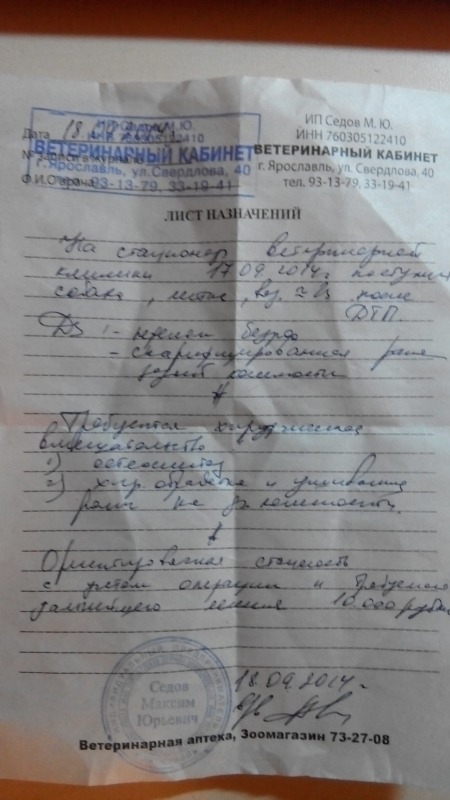 ИП Седов М. Ю.
ИНН 760305122410
ВЕТЕРИНАРНЫЙ КАБИНЕТ
г. Ярославль, ул. Свердлова, 40
тел. 93-13-79, 33-19-41
Дата 18
ИП Седов М. Ю.
ИНН 760305122410
ВЕТЕРИНАРНЫЙ КАБИНЕТ
г. Ярославль, ул. Свердлова, 40
93-13-79, 33-19-41
ЛИСТ НАЗНАЧЕНИЙ
На стационар ветеринарной
клиники 17.09.2014г. поступила
собака, после
ДТП.
DS: - перелом бедра
- скарифицированная рана
задней конечности
Требуется хирургическое
вмешательство
1) остеосинтез
2) хир. обработка и ушивание
раны на конечности.
Ориентировочная стоимость
с учетом операции и требуемого
дальнейшего лечения 10.000 рублей
18.09.2014г.
Седов
Максим
Юрьевич
Ветеринарная аптека, Зоомагазин 73-27-08